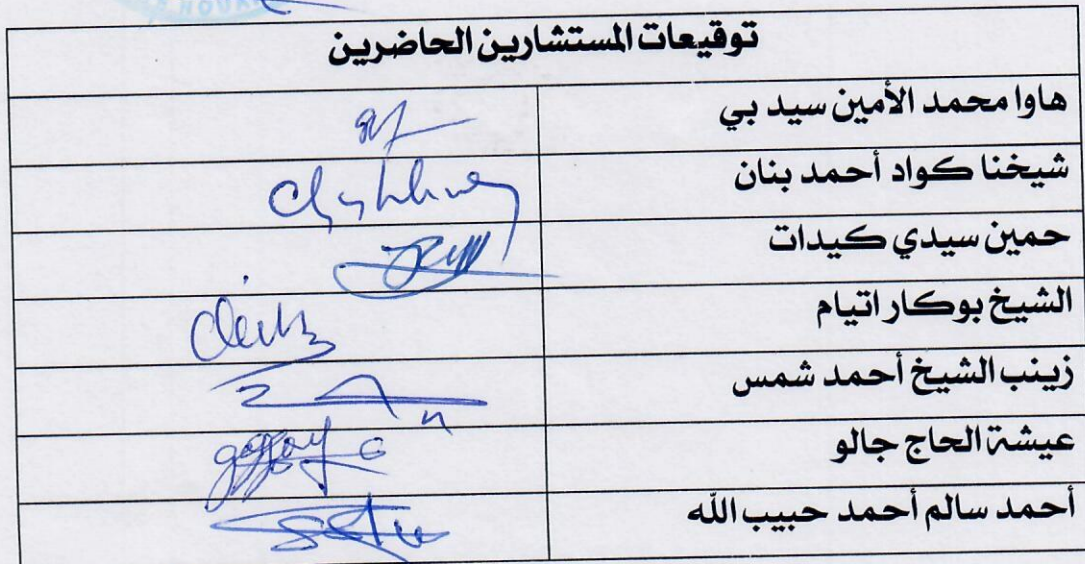 HOUA
توقيعات المستشارين الحاضرين
هاوا محمد الأمين سيد بي
شيخنا كواد أحمد بنان
حمين سيدي كيدات
الشيخ بوكار اتيام
زينب الشيخ أحمد شمس
عيشة الحاج جالو
أحمد سالم أحمد حبيب الله